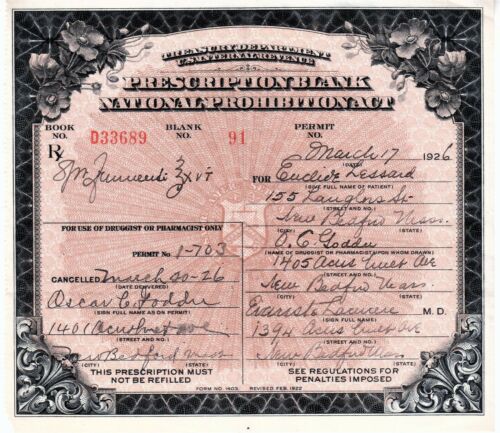 TREASURY DEPARTMENT
U.S. INTERNAL REVENUE
PRESCRIPTION BLANK
NATIONAL PROHIBITION ACT
BOOK NO. D33689 BLANK NO. 91 PERMIT NO.
March 17 1926
(DATE)
Rx
Spts Frumenti
FOR Euclide Lessard
(GIVE FULL NAME OF PATIENT)
155
St
(STREET AND NO.)
New Bedford Mass.
(CITY) (STATE)
O. C. Goddu
(NAME OF DRUGGIST OR PHARMACIST UPON WHOM DRAWN)
1405 Acushnet Ave
(STREET AND NO.)
New Bedford Mass.
(CITY) (STATE)
M. D.
(SIGN FULL NAME)
1394 Acushnet Ave
(STREET AND NO.)
New Bedford Mass
(CITY) (STATE)
SEE REGULATIONS FOR
PENALTIES IMPOSED
FOR USE OF DRUGGIST OR PHARMACIST ONLY
PERMIT NO. 1-703
CANCELLED March 20-26
(DATE DELIVERED)
Oscar C. Goddu
(SIGN FULL NAME AS ON PERMIT)
1401 Acushnet ave
(STREET AND NO.)
New Bedford Mass
(CITY) (STATE)
THIS PRESCRIPTION MUST
NOT BE REFILLED
FORM NO. 1403. REVISED FEB. 1922